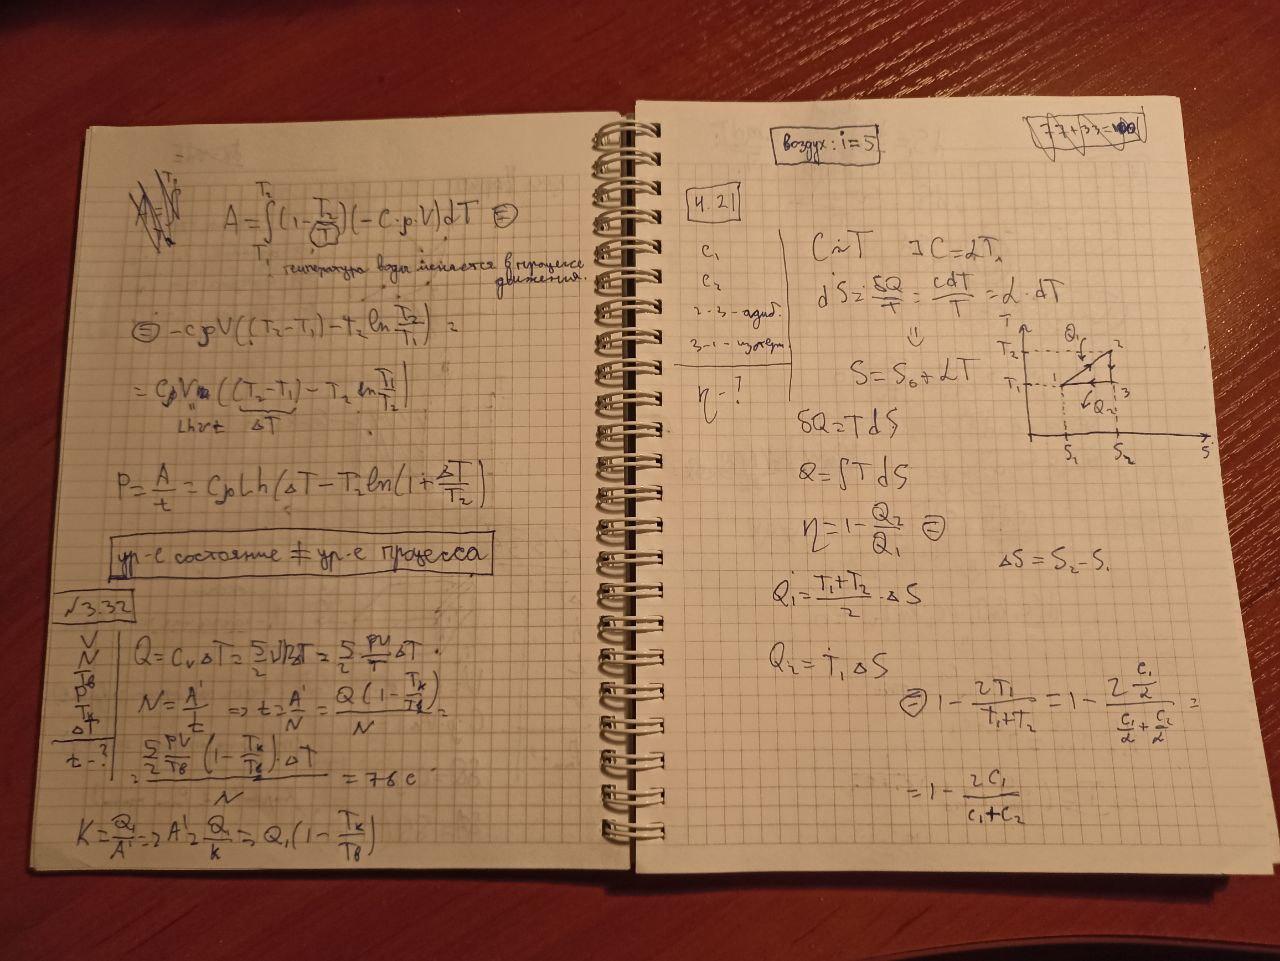 A = ∫_{T₁}^{T₂} (1 - T₂/T)(-c·ρ·V)dT ⊜
температура воды меняется в процессе
движения.
⊜ -cρV((T₂-T₁) - T₂ ln T₂/T₁) =
= cρV((T₂-T₁) - T₂ ln T₁/T₂)
Lhvt ΔT
P = A/t = cρLh(ΔT - T₂ ln(1 + ΔT/T₂))
ур-е состояние ≠ ур-е процесса
№3.32
V
N
Tв
P
Tк
ΔT
t - ?
Q = Cv ΔT = 5/2 νRΔT = 5/2 PV/T ΔT
N = A'/t ⇒ t = A'/N = Q(1 - Tк/Tв)/N =
= 5/2 PV/Tв (1 - Tк/Tв)·ΔT / N = 78 с
K = Q₁/A' ⇒ A' = Q₁/K = Q₁(1 - Tк/Tв)
воздух: i = 5
4.21
c₁
c₂
2-3-адиб.
3-1-изотерм.
η - ?
C ~ T ∃ C = αT,
dS = δQ/T = cdT/T = α·dT
⇓
S = S₀ + αT
δQ = TdS
Q = ∫TdS
η = 1 - Q₂/Q₁ ⊜
ΔS = S₂ - S₁
Q₁ = (T₁+T₂)/2 · ΔS
Q₂ = T₁ΔS
⊜ 1 - 2T₁/(T₁+T₂) = 1 - (2 c₁/α)/(c₁/α + c₂/α) =
= 1 - 2c₁/(c₁+c₂)
T
T₂
T₁
Q₁
1
2
3
Q₂
S₁
S₂
S